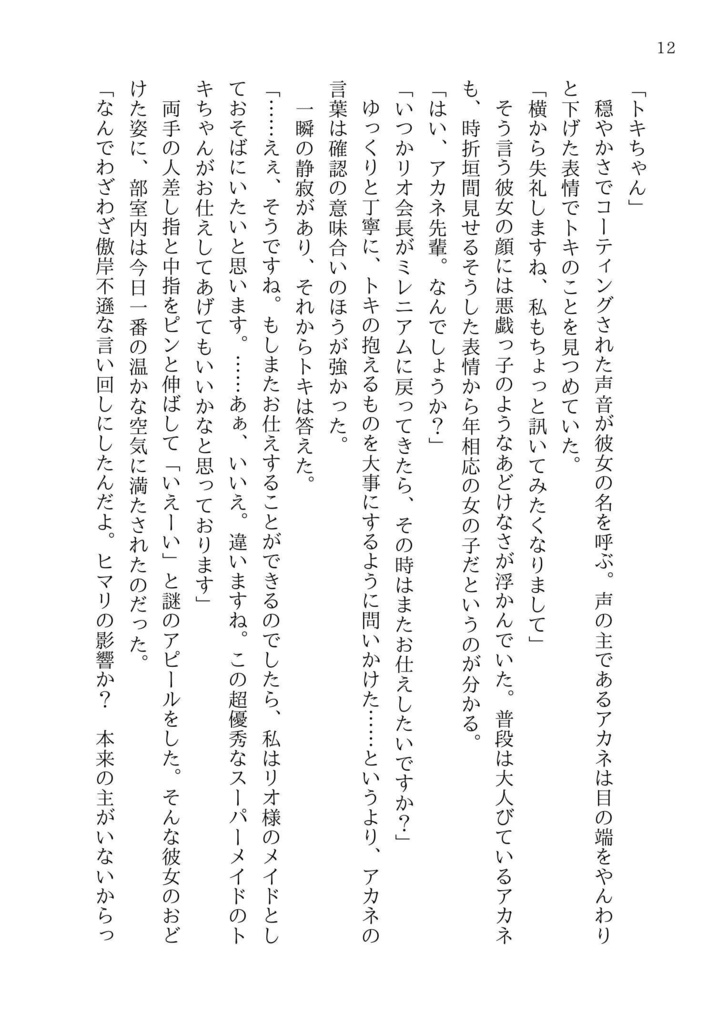 12
「トキちゃん」
穏やかさでコーティングされた声音が彼女の名を呼ぶ。声の主であるアカネは目の端をやんわり
と下げた表情でトキのことを見つめていた。
「横から失礼しますね、私もちょっと訊いてみたくなりまして」
そう言う彼女の顔には悪戯っ子のようなあどけなさが浮かんでいた。普段は大人びているアカネ
も、時折垣間見せるそうした表情から年相応の女の子だというのが分かる。
「はい、アカネ先輩。なんでしょうか？」
「いつかリオ会長がミレニアムに戻ってきたら、その時はまたお仕えしたいですか？」
ゆっくりと丁寧に、トキの抱えるものを大事にするように問いかけた……というより、アカネの
言葉は確認の意味合いのほうが強かった。
一瞬の静寂があり、それからトキは答えた。
「……えぇ、そうですね。もしまたお仕えすることができるのでしたら、私はリオ様のメイドとし
ておそばにいたいと思います。……あぁ、いいえ。違いますね。この超優秀なスーパーメイドのト
キちゃんがお仕えしてあげてもいいかなと思っております」
両手の人差し指と中指をピンと伸ばして「いえーい」と謎のアピールをした。そんな彼女のおど
けた姿に、部室内は今日一番の温かな空気に満たされたのだった。
「なんでわざわざ傲岸不遜な言い回しにしたんだよ。ヒマリの影響か？　本来の主がいないからっ